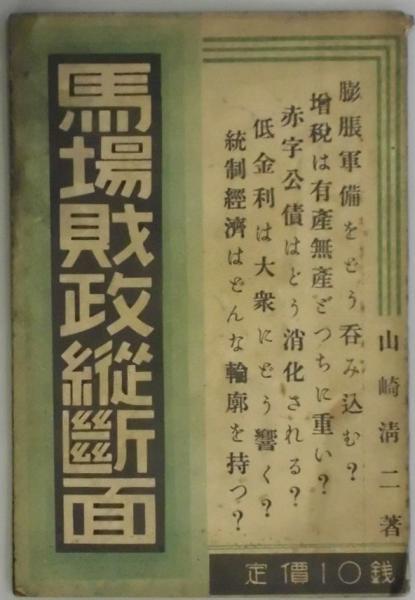 膨脹軍備をどう呑み込む?
增税は有產無產どつちに重い?
赤字公債はどう消化される?
低金利は大衆にどう響く?
統制經濟はどんな輪廓を持つ?
山崎淸二著
馬場財政縱斷面
定價10錢